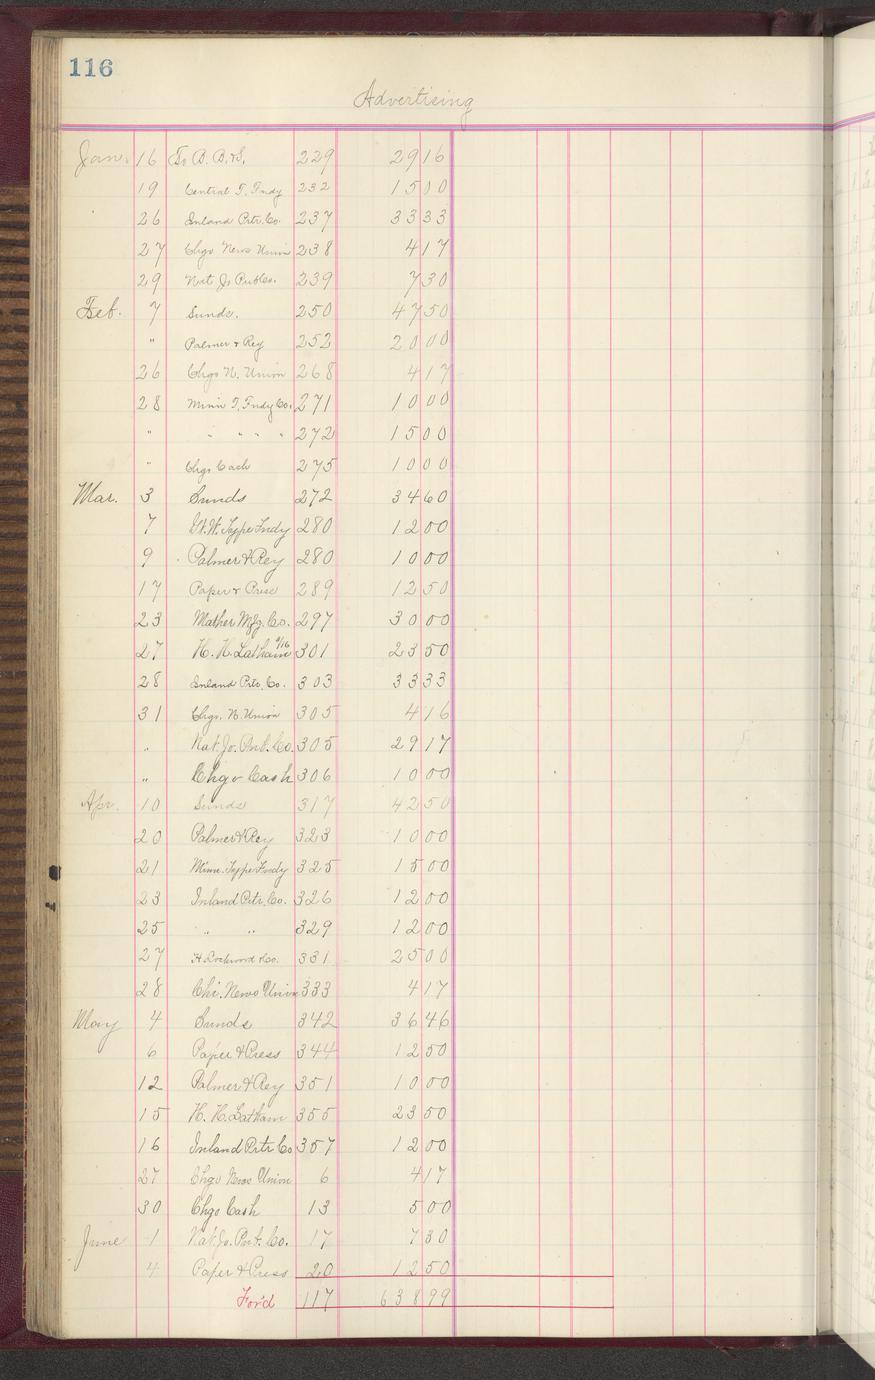 116
Advertising
Jan. 16 To B. B. & S. 229 29 16
19 Central T. Fndy 232 15 00
26 Inland Prtr. Co. 237 33 33
27 Chgo News Union 238 4 17
29 Nat Jo Pub Co. 239 7 30
Feb. 7 Sunds. 250 47 50
" Palmer & Rey 252 20 00
26 Chgo N. Union 268 4 17
28 Minn T. Fndy Co. 271 10 00
" " " " " 272 15 00
" Chgo Cash 275 10 00
Mar. 3 Sunds 272 34 60
7 Gt. W. Type Fndy 280 12 00
9 Palmer & Rey 280 10 00
17 Paper & Press 289 12 50
23 Mather Mfg. Co. 297 30 00
27 H. H. Latham 301 23 50
28 Inland Prtr. Co. 303 33 33
31 Chgo. N. Union 305 4 16
" Nat. Jo. Pub. Co. 305 29 17
" Chgo Cash 306 10 00
Apr. 10 Sunds 317 42 50
20 Palmer & Rey 323 10 00
21 Minn. Type Fndy 325 15 00
23 Inland Prtr. Co. 326 12 00
25 " " 329 12 00
27 H. Lockwood & Co. 331 25 00
28 Chi. News Union 333 4 17
May 4 Sunds 342 36 46
6 Paper & Press 344 12 50
12 Palmer & Rey 351 10 00
15 H. H. Latham 355 23 50
16 Inland Prtr Co 357 12 00
27 Chgo News Union 6 4 17
30 Chgo Cash 13 5 00
June 1 Nat. Jo. Pub. Co. 17 7 30
4 Paper & Press 20 12 50
For'd 117 638 99